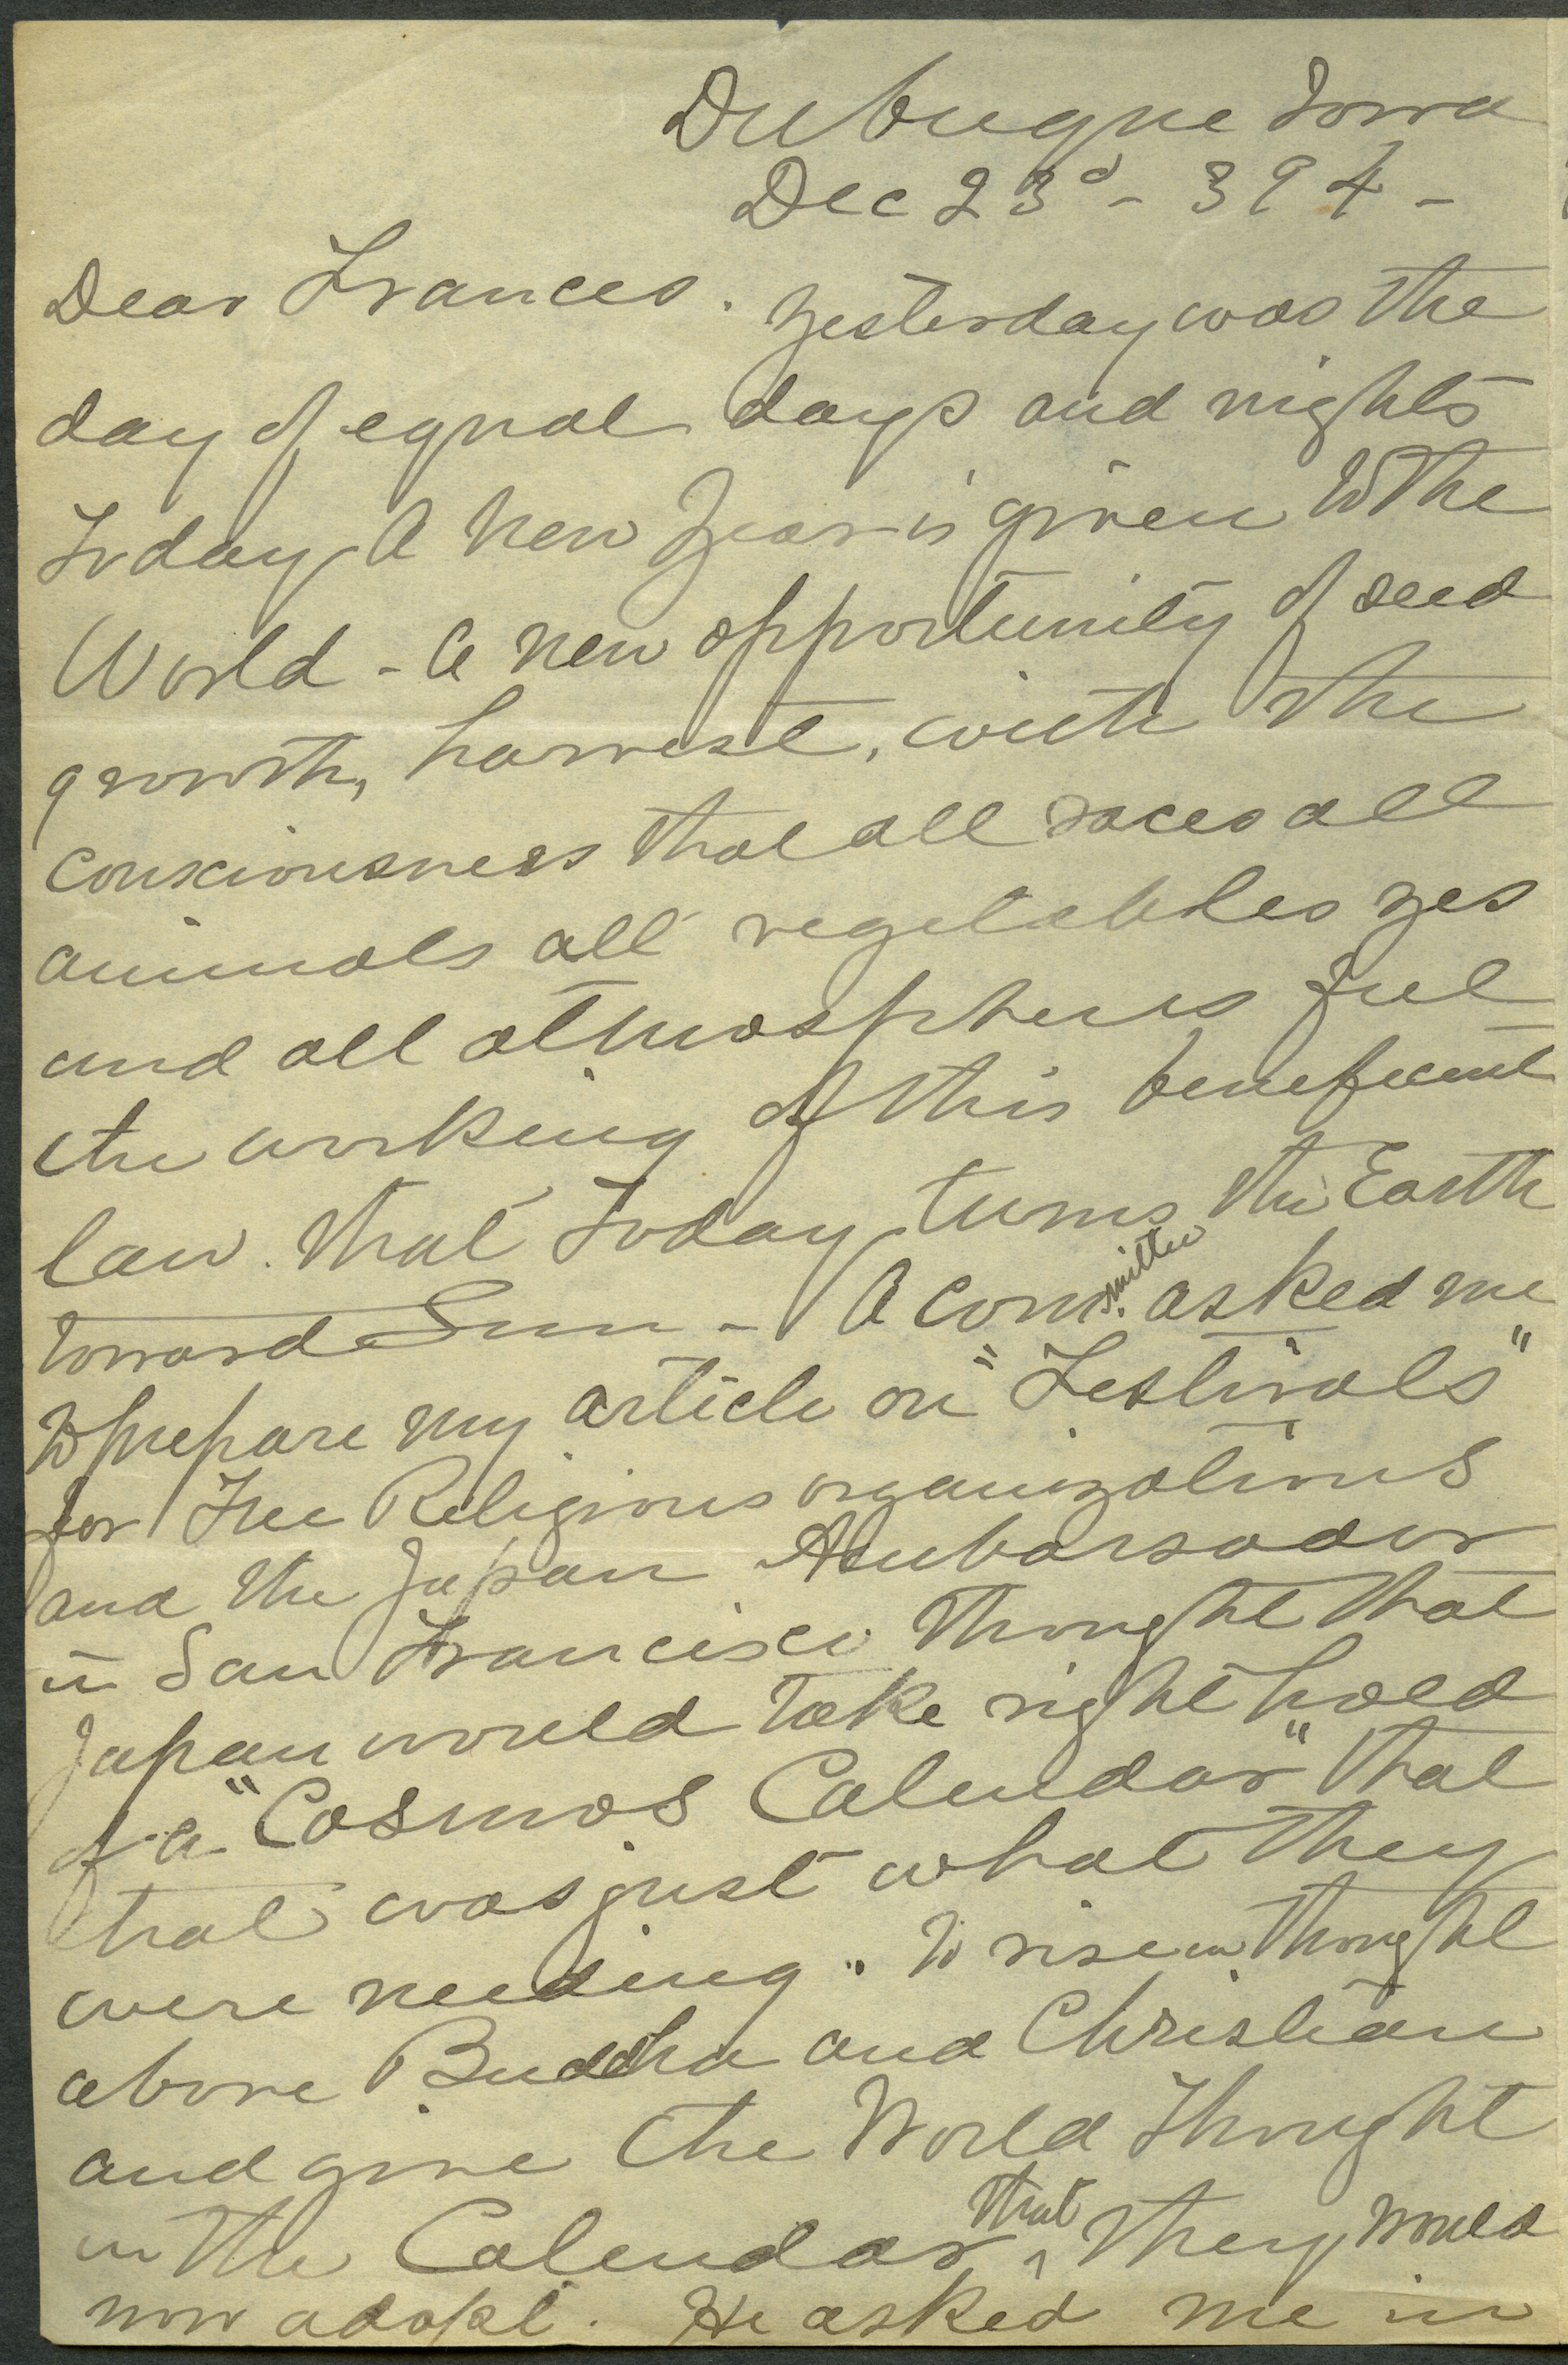 Dubuque Iowa
Dec 23d - 394 -
Dear Frances. Yesterday was the
day of equal days and nights
Today A New Year is given to the
World - A new opportunity of seed
growth, harvest, with the
consciousness that all races all
animals all vegetables yes
and all atmospheres feel
the working of this beneficent
law. that Today turns the Earth
toward Sun - A committee asked me
to prepare my article on "Festivals"
for Free Religious organizations
and the Japan Ambassador
in San Francisco thought that
Japan would take right hold
of a "Cosmos Calendar" that
that was just what they
were needing. "to rise in thought
above Buddha and Christian
and give the World Thought
in the Calendar that they would
now adopt. He asked me in